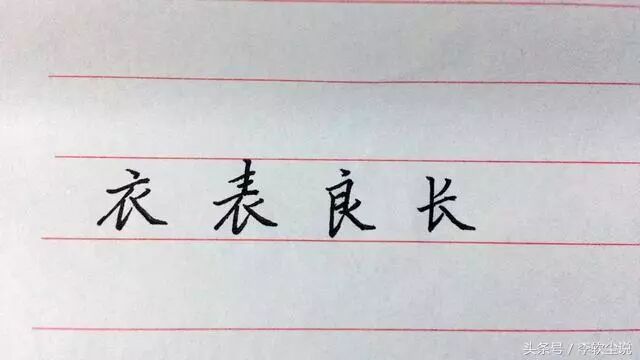 衣表良长
头条号/李软尘说